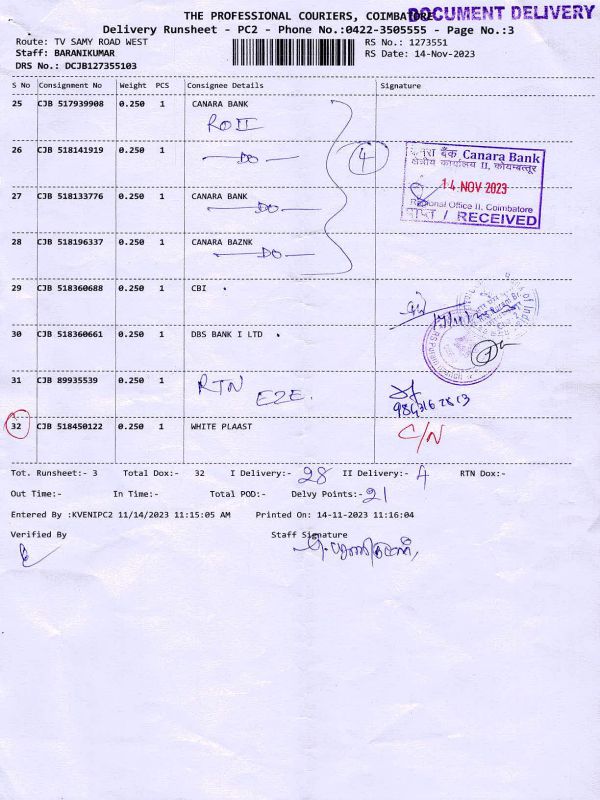 DOCUMENT DELIVERY
THE PROFESSIONAL COURIERS, COIMBATORE
Delivery Runsheet - PC2 - Phone No.:0422-3505555 - Page No.:3
Route: TV SAMY ROAD WEST RS No.: 1273551
Staff: BARANIKUMAR RS Date: 14-Nov-2023
DRS No.: DCJB127355103
S No Consignment No Weight PCS Consignee Details Signature
25 CJB 517939908 0.250 1 CANARA BANK
RO II
26 CJB 518141919 0.250 1 DO
4
केनरा बैंक Canara Bank
क्षेत्रीय कार्यालय II, कोयम्बत्तूर
14 NOV 2023
Regional Office II, Coimbatore
प्राप्त / RECEIVED
27 CJB 518133776 0.250 1 CANARA BANK
DO
28 CJB 518196337 0.250 1 CANARA BAZNK
DO
29 CJB 518360688 0.250 1 CBI
30 CJB 518360661 0.250 1 DBS BANK I LTD
31 CJB 89935539 0.250 1 RTN EZE.
32 CJB 518450122 0.250 1 WHITE PLAAST C/N
Tot. Runsheet:- 3 Total Dox:- 32 I Delivery:- 28 II Delivery:- 4 RTN Dox:-
Out Time:- In Time:- Total POD:- Delvy Points:- 21
Entered By :KVENIPC2 11/14/2023 11:15:05 AM Printed On: 14-11-2023 11:16:04
Verified By Staff Signature